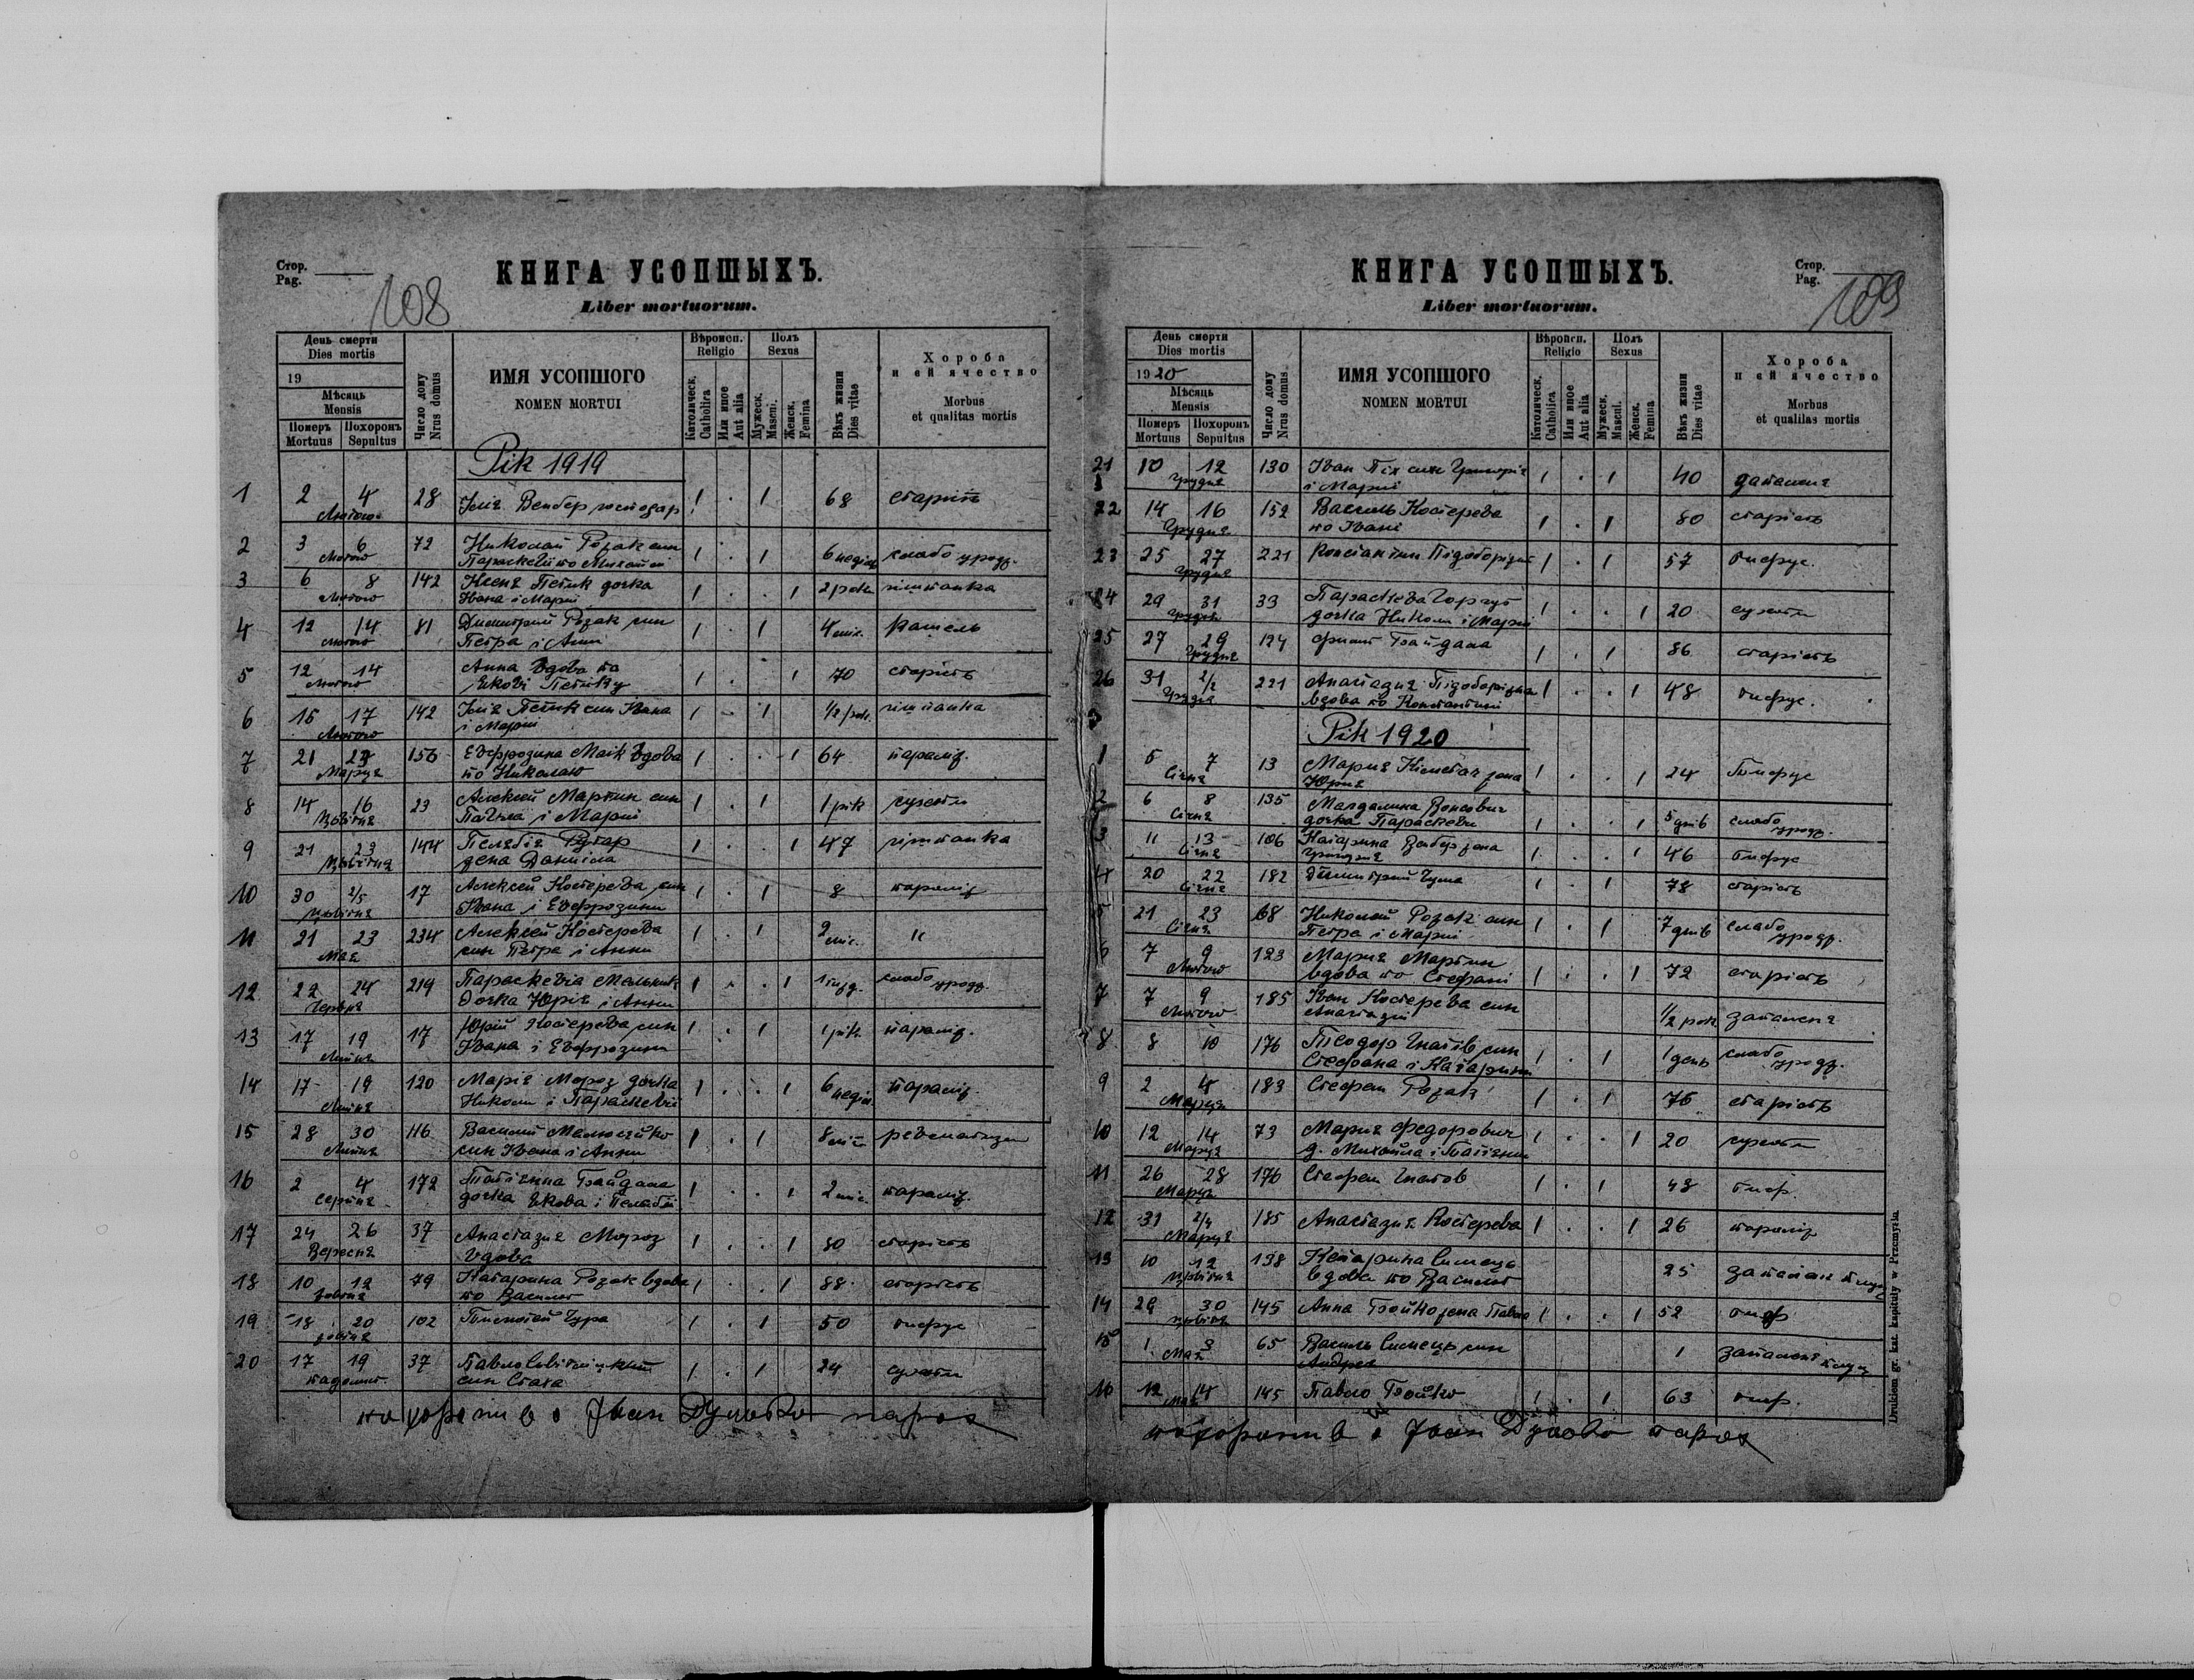 Стор.
Pag.
108
КНИГА УСОПШЫХЪ.
Liber mortuorum.
День смерти
Dies mortis
19
Мѣсяць
Mensis
Померъ Похоронъ
Mortuus Sepultus
Число дому
Nrus domus
ИМЯ УСОПШОГО
NOMEN MORTUI
Вѣроисп.
Religio
Католическ.
Catholica
Или иное
Aut alia
Полъ
Sexus
Мужеск.
Mascul.
Женск.
Femina
Вѣкъ жизни
Dies vitae
Хороба
и ей ячество
Morbus
et qualitas mortis
Рік 1919
1 2 4 28 Ілия Вембер господар 1 . 1 68 старість
Лютого
2 3 6 72 Николай Розак син 1 . 1 6 неділь слабо урод.
Лютого Параскевії по Михайлі
3 6 8 142 Ксеня Петик дочка 1 . . 1 2 роки гішпанка
Лютого Івана і Марії
4 12 14 81 Димитрий Розак син 1 . 1 4 міс. кашель
Лютого Петра і Анни
5 12 14 Анна вдова по 1 . 1 70 старість
Лютого Якові Петику
6 15 17 142 Ілія Петик син Івана 1 . 1 1/2 рок. гішпанка
Лютого і Марії
7 21 23 156 Евфрозина Маїк вдова 1 . . 1 64 параліж.
Марця по Николаю
8 14 16 23 Алексей Мартин син 1 . 1 1 рік сухоти
Цвітня Павла і Марії
9 21 23 144 Пелагія 1 . . 1 47 гішпанка
Цвітня жена Даниіла
10 30 2/5 17 Алексей Костерева син 1 . 1 8 параліж
Цвітня Івана і Евфрозини
11 21 23 234 Алексей Костерева 1 . 1 2 міс. "
Мая син Петра і Анни
12 22 24 219 Параскевія Мельник 1 . . 1 слабо урод.
Червня дочка Юрія і Анни
13 17 19 17 Юрій Костерева син 1 . 1 1 рік параліж.
Липня Івана і Евфрозини
14 17 19 120 Марія Мороз дочка 1 . . 1 6 неділ. параліж.
Липня Николи і Параскевії
15 28 30 116 Василий 1 . 1 8 міс ревматизм
Липня син Івана і Анни
16 2 4 172 Татіянна Гайдала 1 . . 1 2 міс. параліж.
Серпня дочка Якова і Пелагії
17 24 26 37 Анастазия Мороз 1 . . 1 80 старість
Вересня вдова
18 10 12 79 Катарина Розак вдова 1 . . 1 88 старість
Жовтня по Василю
19 18 20 102 Тимотей Чура 1 . 1 50 тифус
жовтня
20 17 19 37 Павло 1 . 1 24 сухоти
падолист. син Стаха
похоронив о Іван Дуцько парох
Стор.
Pag.
109
КНИГА УСОПШЫХЪ.
Liber mortuorum.
День смерти
Dies mortis
1920
Мѣсяць
Mensis
Померъ Похоронъ
Mortuus Sepultus
Число дому
Nrus domus.
ИМЯ УСОПШОГО
NOMEN MORTUI
Вѣроисп.
Religio
Католическ.
Catholica
Или иное
Aut alia
Полъ
Sexus
Мужеск.
Mascul.
Женск.
Femina
Вѣкъ жизни
Dies vitae
Хороба
и ей ячество
Morbus
et qualitas mortis
21 10 12 130 Іван Піх син Григорія 1 . 1 40 запалення
Грудня і Марії
22 14 16 152 Василь Костерева 1 . 1 80 старість
Грудня по Івані
23 25 27 221 Константин 1 . 1 57 тифус.
Грудня
24 29 31 39 Параскева 1 . . 1 20 сухоти
Грудня дочка Николи і Марії
25 27 29 124 Филип Гайдала 1 . 1 86 старість
Грудня
26 31 2/2 221 Анастазия 1 . . 1 48 тифус.
Грудня вдова по Константині
Рік 1920
1 5 7 13 Мария жена 1 . . 1 24 тифус
Січня Юрія
2 6 8 135 Магдалина Вонсович 1 . . 1 5 днів слабо урод.
Січня дочка Параскеви
3 11 13 106 Катарина Вембер жена 1 . . 1 46 тифус
Січня Григория
4 20 22 182 Димитрий 1 . 1 78 старість
Січня
5 21 23 68 Николай Розак син 1 . 1 7 днів слабо урод.
Січня Петра і Марії
6 7 9 123 Мария Мартин 1 . . 1 72 старість
Лютого вдова по Стефані
7 7 9 185 Іван Костерева син 1/2 рок запаленя
Лютого Анастазії
8 8 10 176 Теодор Гнатів син 1 . 1 1 день слабо урод.
Стефана і Катарини
9 2 4 183 Стефан Розак 1 . 1 76 старість
Марця
10 12 14 73 Мария Федорович 1 . . 1 20 сухоти
Марця д. Михайла і Татіянни
11 26 28 176 Стефан Гнатов 1 . 1 48 тиф.
Марця
12 31 2/4 185 Анастазия Костерева 1 . . 1 26 параліж
Марця
13 10 12 138 Катарина Симець 25 запален
Цвітня вдова по Василю
14 28 30 145 Анна Бойко жена Павла 1 . . 1 52 тиф
цвітня
15 1 3 65 Василь Симець син 1 запалень
Мая Андрея
16 12 14 145 Павло Бойко 1 . 1 63 тиф.
Мая
похоронив о Іван Дуцько парох
Drukiem gr. kat. kapituły w Przemyślu